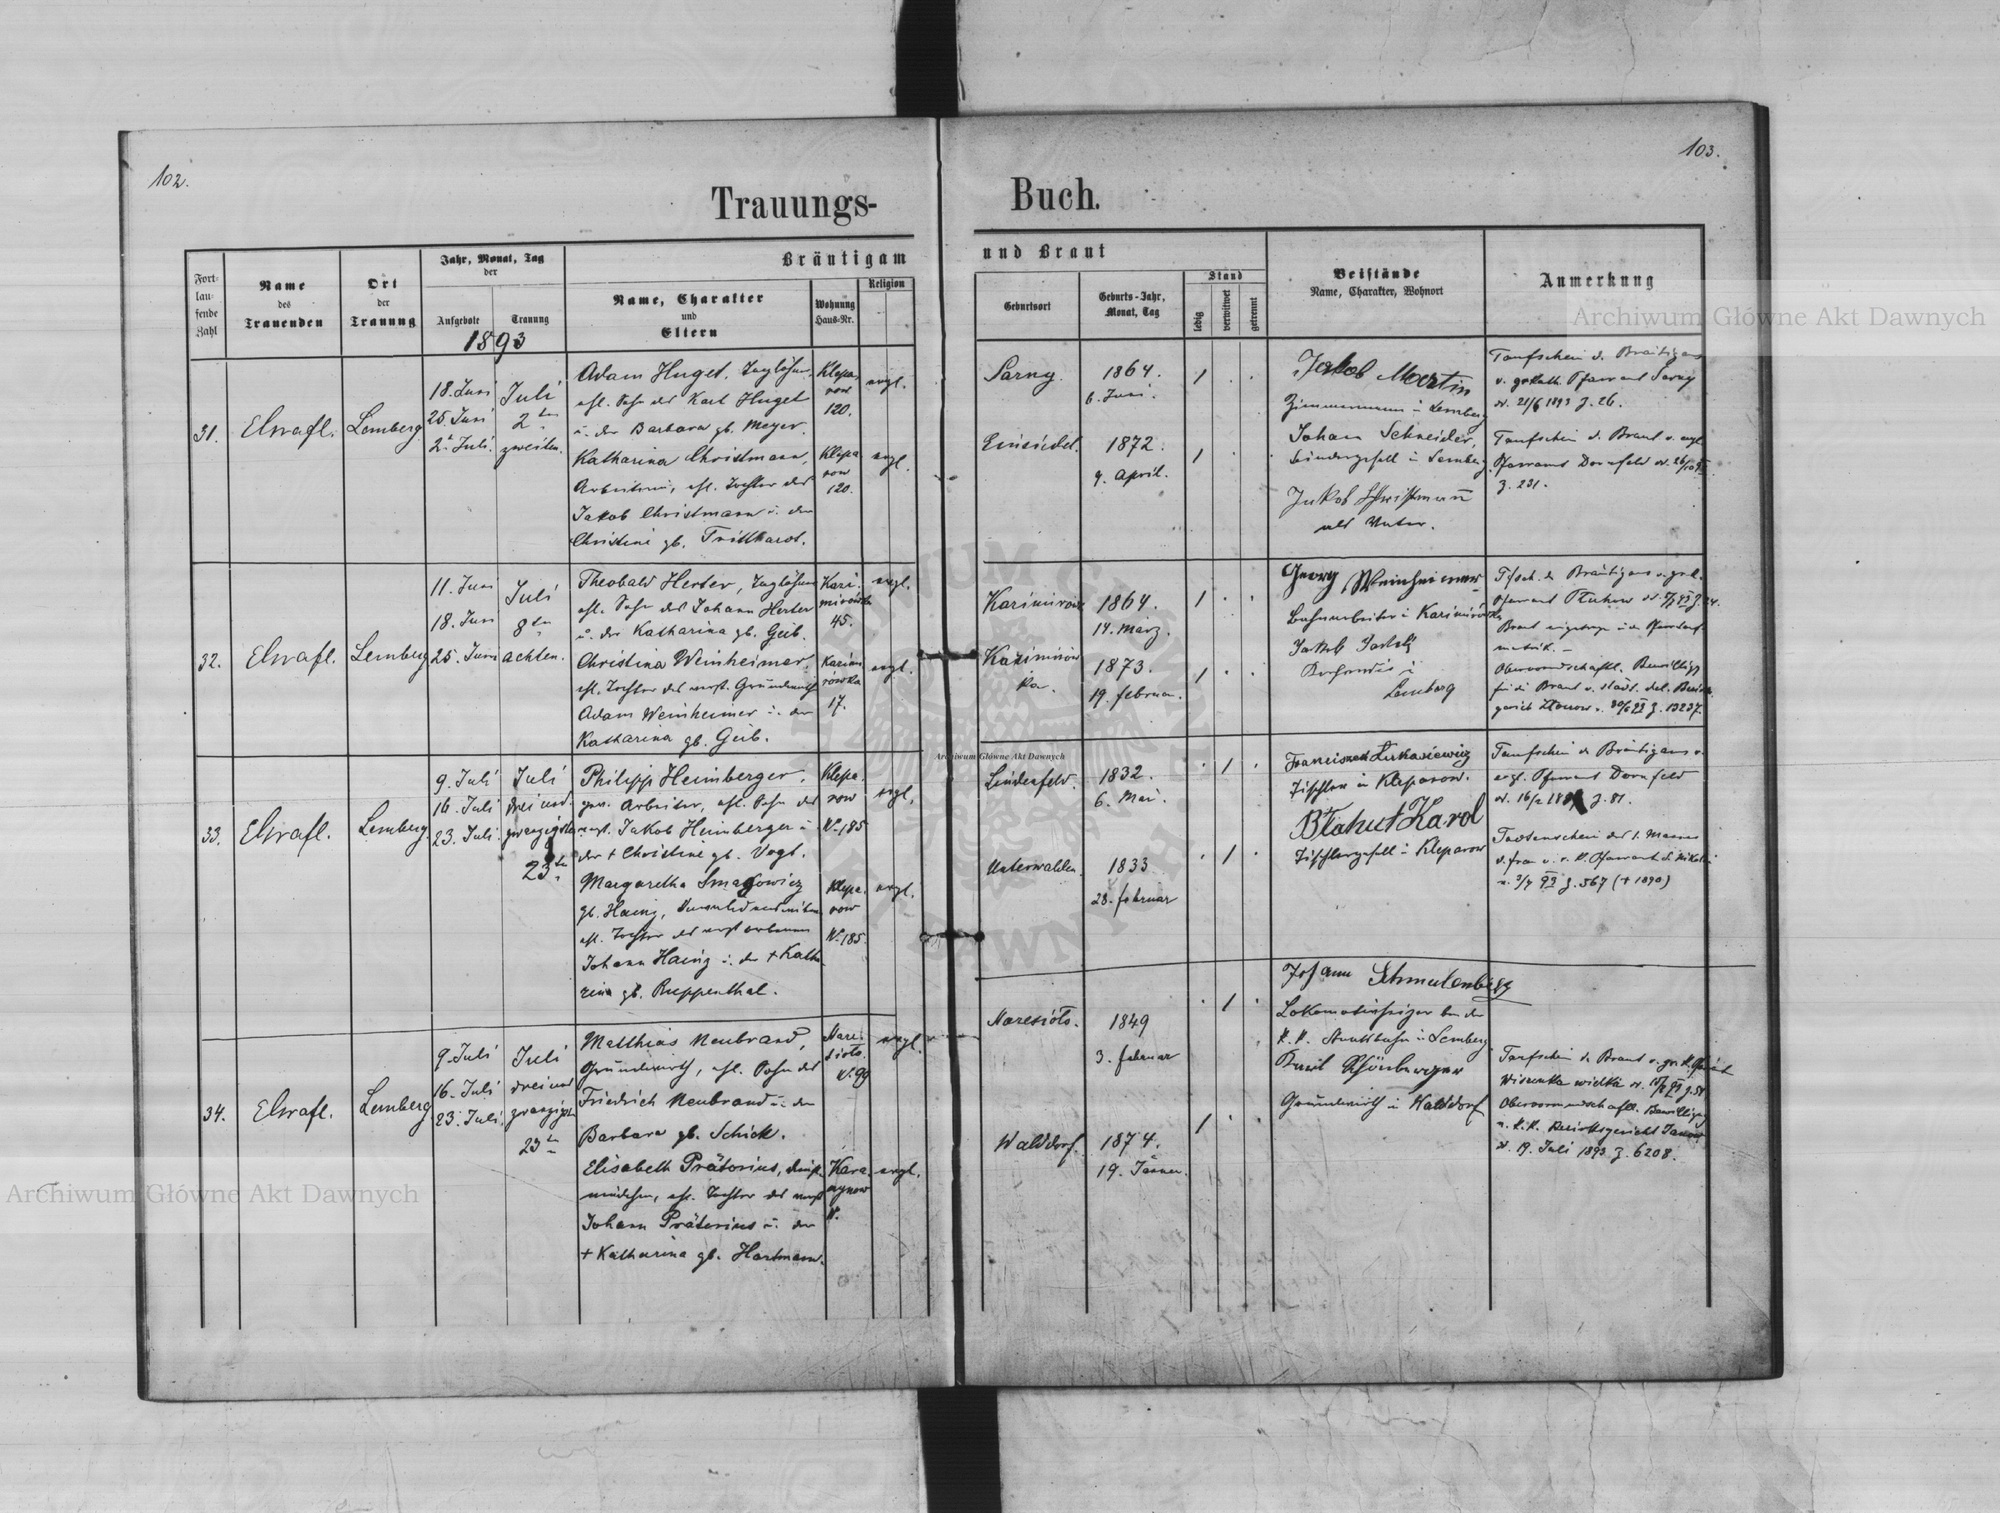 102.
103.
Trauungs-
Buch.
Fort-
lau-
fende
Zahl
Name
des
Trauenden
Ort
der
Trauung
Jahr, Monat, Tag
der
Aufgebote
Trauung
1893
Bräutigam
Name, Charakter
und
Eltern
Wohnung
Haus-Nr.
Religion
und Braut
Geburtsort
Geburts-Jahr,
Monat, Tag
Stand
ledig
verwitwet
getrennt
Beistände
Name, Charakter, Wohnort
Anmerkung
31.
Lemberg
18. Juni
25. Juni
2. Juli.
Juli
2ten
zweiten.
Adam Huget, Taglöhner,
ehl. Sohn des Karl Huget
u. der Barbara gb. Meyer.
Katharina Christmann,
Arbeiterin, ehl. Tochter des
Jakob Christmann u. der
Christine gb. Trittkarot.
Klepa
row
120.
Klepa
row
120.
evgl.
evgl.
Sarny.
Einsidel.
1864.
6. Juni.
1872.
9. April.
Jakob Martin
Zimmermann in Lemberg
Johann Schneider,
in Lemberg
Jakob Christmann
als Vater.
Taufschein d. Bräutigams
v. gr. kath. Pfarramt Sarny
d. 21/6 1893 Z. 26.
Taufschein d. Braut v. evgl.
Pfarramt Dornfeld
Z. 231.
32.
Lemberg
11. Juni
18. Juni
25. Juni
Juli
8ten
achten.
Theobald Herter, Taglöhner
ehl. Sohn des Johann Herter
u. der Katharina gb. Geib.
Christina Weinheimer,
ehl. Tochter des verst. Grundwirth
Adam Weinheimer u. der
Katharina gb. Geib.
Kazi-
mirówka
45.
Kazimi
rowka
17.
evgl.
evgl.
Kazimirówka
Kazimirów
ka.
1864.
14. März.
1873.
19. Februar.
Georg Weinheimer
Bahnarbeiter in Kazimirówka
Jakob
Lemberg
Obervormundschaftl. Bewilligg
für die Braut v. städt. del. Bezirks
gericht Z. 13237.
33.
Lemberg.
9. Juli
16. Juli
23. Juli
Juli
drei und
zwanzigsten
23ten
Philipp Heimberger,
gew. Arbeiter, ehl. Sohn des
verst. Jakob Heimberger u
der + Christine gb. Vogt.
Margaretha Smagowicz
gb. Hainz,
ehl. Tochter des verstorbenen
Johann Hainz u. der + Katha
rina gb. Ruppenthal.
Klepa-
row
Nr 185
Klepa-
row
Nr 185.
evgl.
evgl.
Lindenfeld.
Unterwalden.
1832.
6. Mai.
1833
28. Februar
Franciszek Łukasiewicz
Tischler in Kleparow.
Błahut Karol
Tischlergesell in Kleparow
Taufschein d. Bräutigams v.
evgl. Pfarramt Dornfeld
Z. 81.
Todtenschein des 1. Mannes
Z. 567 (+ 1890)
34.
Lemberg.
9. Juli
16. Juli
23. Juli.
Juli
drei und
zwanzigst.
23ten
Matthias Neubrand,
Grundwirth, ehl. Sohn des
Friedrich Neubrand u. der
Barbara gb. Schick.
Elisabeth Prätorius, Dienst-
mädchen, ehl. Tochter des verst
Johann Prätorius u. der
+ Katharina gb. Hartmann.
Hare-
siots.
Nr. 99
Kara
czynow
N.
evgl.
evgl.
Waldorf.
1849
3. Februar
1874.
19. Jänner.
Johann Schmalenberg
Lokomotivheizer bei der
k. k. Staatsbahn in Lemberg
Karl Schönberger
Grundwirth in Walddorf
Taufschein d. Braut
Wiszenka wielka
Obervormundschaftl. Bewilligg
v. k. k. Bezirksgericht Janow
d. 19. Juli 1893 Z. 6208.
Archiwum Główne Akt Dawnych
Archiwum Główne Akt Dawnych
Archiwum Główne Akt Dawnych